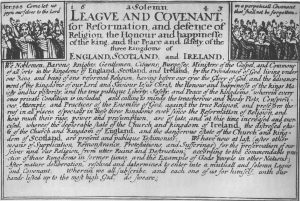 Ier:50:5 Come let us
joyn ourselves to the Lord
in a perpetuall Covenant
that shall not be forgotten.
A Solemn
LEAGVE AND COVENANT,
for Reformation, and defence of
Religion, the Honour and happinesse
of the king, and the Peace and safety of the
three kingdoms of
ENGLAND, SCOTLAND, and IRELAND.
We Noblemen, Barons, Knights, Gentlemen, Citizens, Burgesses, Ministers of the Gospel, and Commons
of all sorts in the kingdoms of England, Scotland, and Ireland, by the Providence of God living under
one King, and being of one reformed Religion, having before our eyes the Glory of God, and the advance-
ment of the kingdome of our Lord and Saviour Iesus Christ, the Honour and happinesse of the kings Ma-
and his posterity, and the true publique Liberty, Safety, and Peace of the kingdoms, wherein every
ones private Condition is included, and calling to minde the treacherous and bloody Plots, Conspira-
cies, Attempts, and Practices of the Enemies of God, against the true Religion, and professors there-
of in all places, especially in these three kingdoms ever since the Reformation of Religion, and
how much their rage, power and presumption, are of late, and at this time increased and exer-
cised; whereof the deplorable state of the Church and kingdom of Ireland, the distressed
of the Church and kingdom of England, and the dangerous estate of the Church and king-
dom of Scotland, are present and publique Testimonies; We have now at last, after other
means of Supplication, Remonstrance, Protestations, and Sufferings, for the preservation of our
selves and our Religion, from utter Ruine and Destruction; according to the commendable
of these kingdoms in former times, and the Example of Gods people in other Nations;
After mature deliberation, resolved and determined to enter into a mutuall and solemn League
and Covenant. Wherein we all subscribe, and each one of us for himself, with our
hands lifted up to the most high God, do sweare;